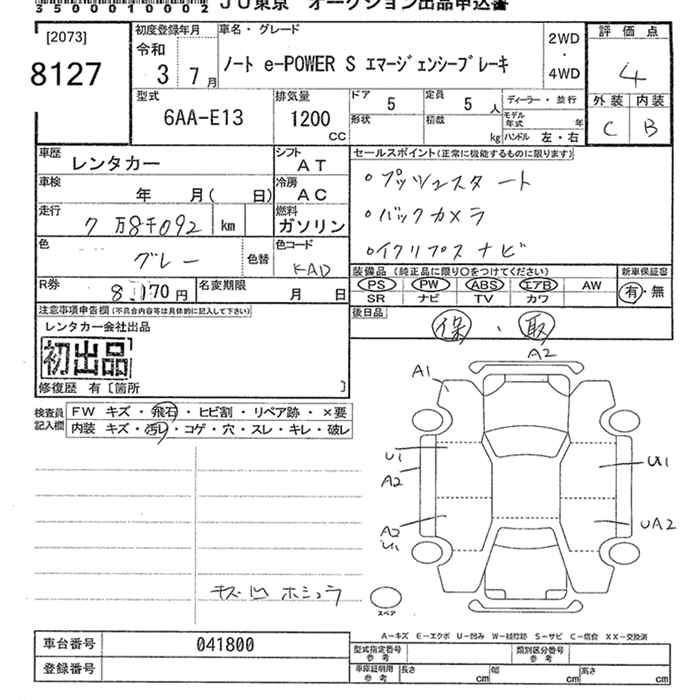 3500010002 JU東京 オークション出品申込書
[2073]
8127
初度登録年月
令和
3 7月
車名・グレード
ノート e-POWER S エマージェンシーブレーキ
2WD
・
4WD
評価点
4
外装 内装
C B
型式
6AA-E13
排気量
1200
CC
ドア 5
定員 5 人
形状
積載 kg
ディーラー・並行
モデル年式 年
ハンドル 左・右
車歴 レンタカー
シフト AT
車検 年 月( 日)
冷房 AC
走行 7万8千092 km
燃料 ガソリン
色 グレー
色替
色コード KAD
R券 8,170円
名変期限 月 日
セールスポイント(正常に機能するものに限ります)
○プッシュスタート
○バックカメラ
○イクリプスナビ
装備品 (純正品に限り○をつけてください)
PS PW ABS エアB AW
SR ナビ TV カワ
新車保証書
有・無
後日品
保・取
注意事項申告欄(不具合内容等は具体的に記入して下さい)
レンタカー会社出品
初出品
修復歴 有〔箇所 〕
検査員記入欄
FW キズ・飛石・ヒビ割・リペア跡・×要
内装 キズ・汚レ・コゲ・穴・スレ・キレ・破レ
A2
A1
U1
A2
U1
A2
U1
UA2
キズ凹 ホシュラ
スペア
A-キズ E-エクボ U-凹み W-補修跡 S-サビ C-腐食 XX-交換済
車台番号 041800
登録番号
型式指定番号 参考
類別区分番号 参考
車庫証明用 参考
長さ cm
幅 cm
高さ cm